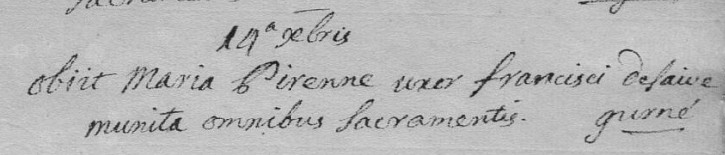 14ᵃ xbris
obiit Maria Pirenne uxor francisci desaive
munita omnibus sacramentis. gurné